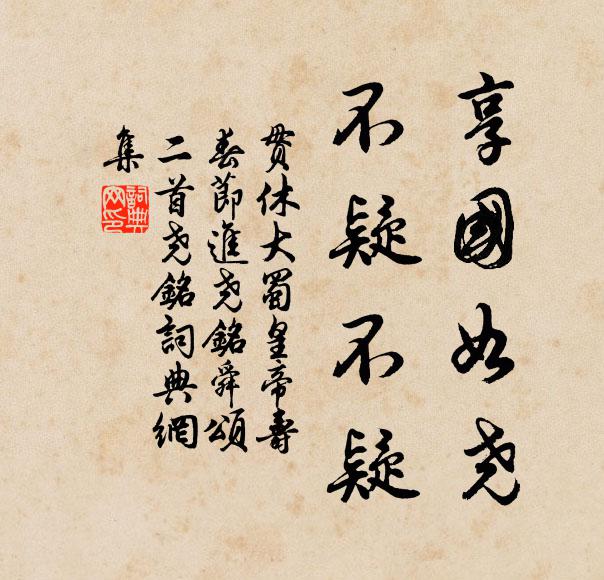 享國如堯
不疑不疑
貫休大蜀皇帝壽
春節進堯銘舜頌
二首堯銘詞典網
集
詞典網印